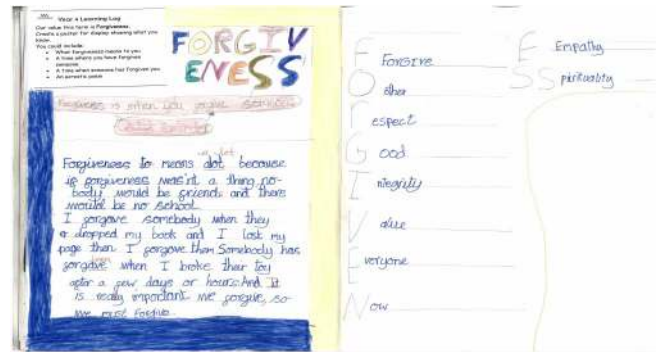 Year 4 Learning Log
Our value this term is Forgiveness.
Create a poster for display showing what you know.
You could include:
• What forgiveness means to you
• A time where you have forgiven someone
• A time when someone has forgiven you
• An acrostic poem
FORGIV
ENESS
Forgivness is when you
Forgiveness to means alot because
if forgiveness was'nt a thing no-
body would be friends and there
would be no school.
I forgave somebody when they
dropped my book and I lost my
page then I forgave them Somebody has
forgave when I broke their toy
after a few days or hours. And It
is really important we forgive, so
we must forgive
Forgive
Other
respect
Good
Integrity
Value
Everyone
Now
E Empathy
S Spirituality